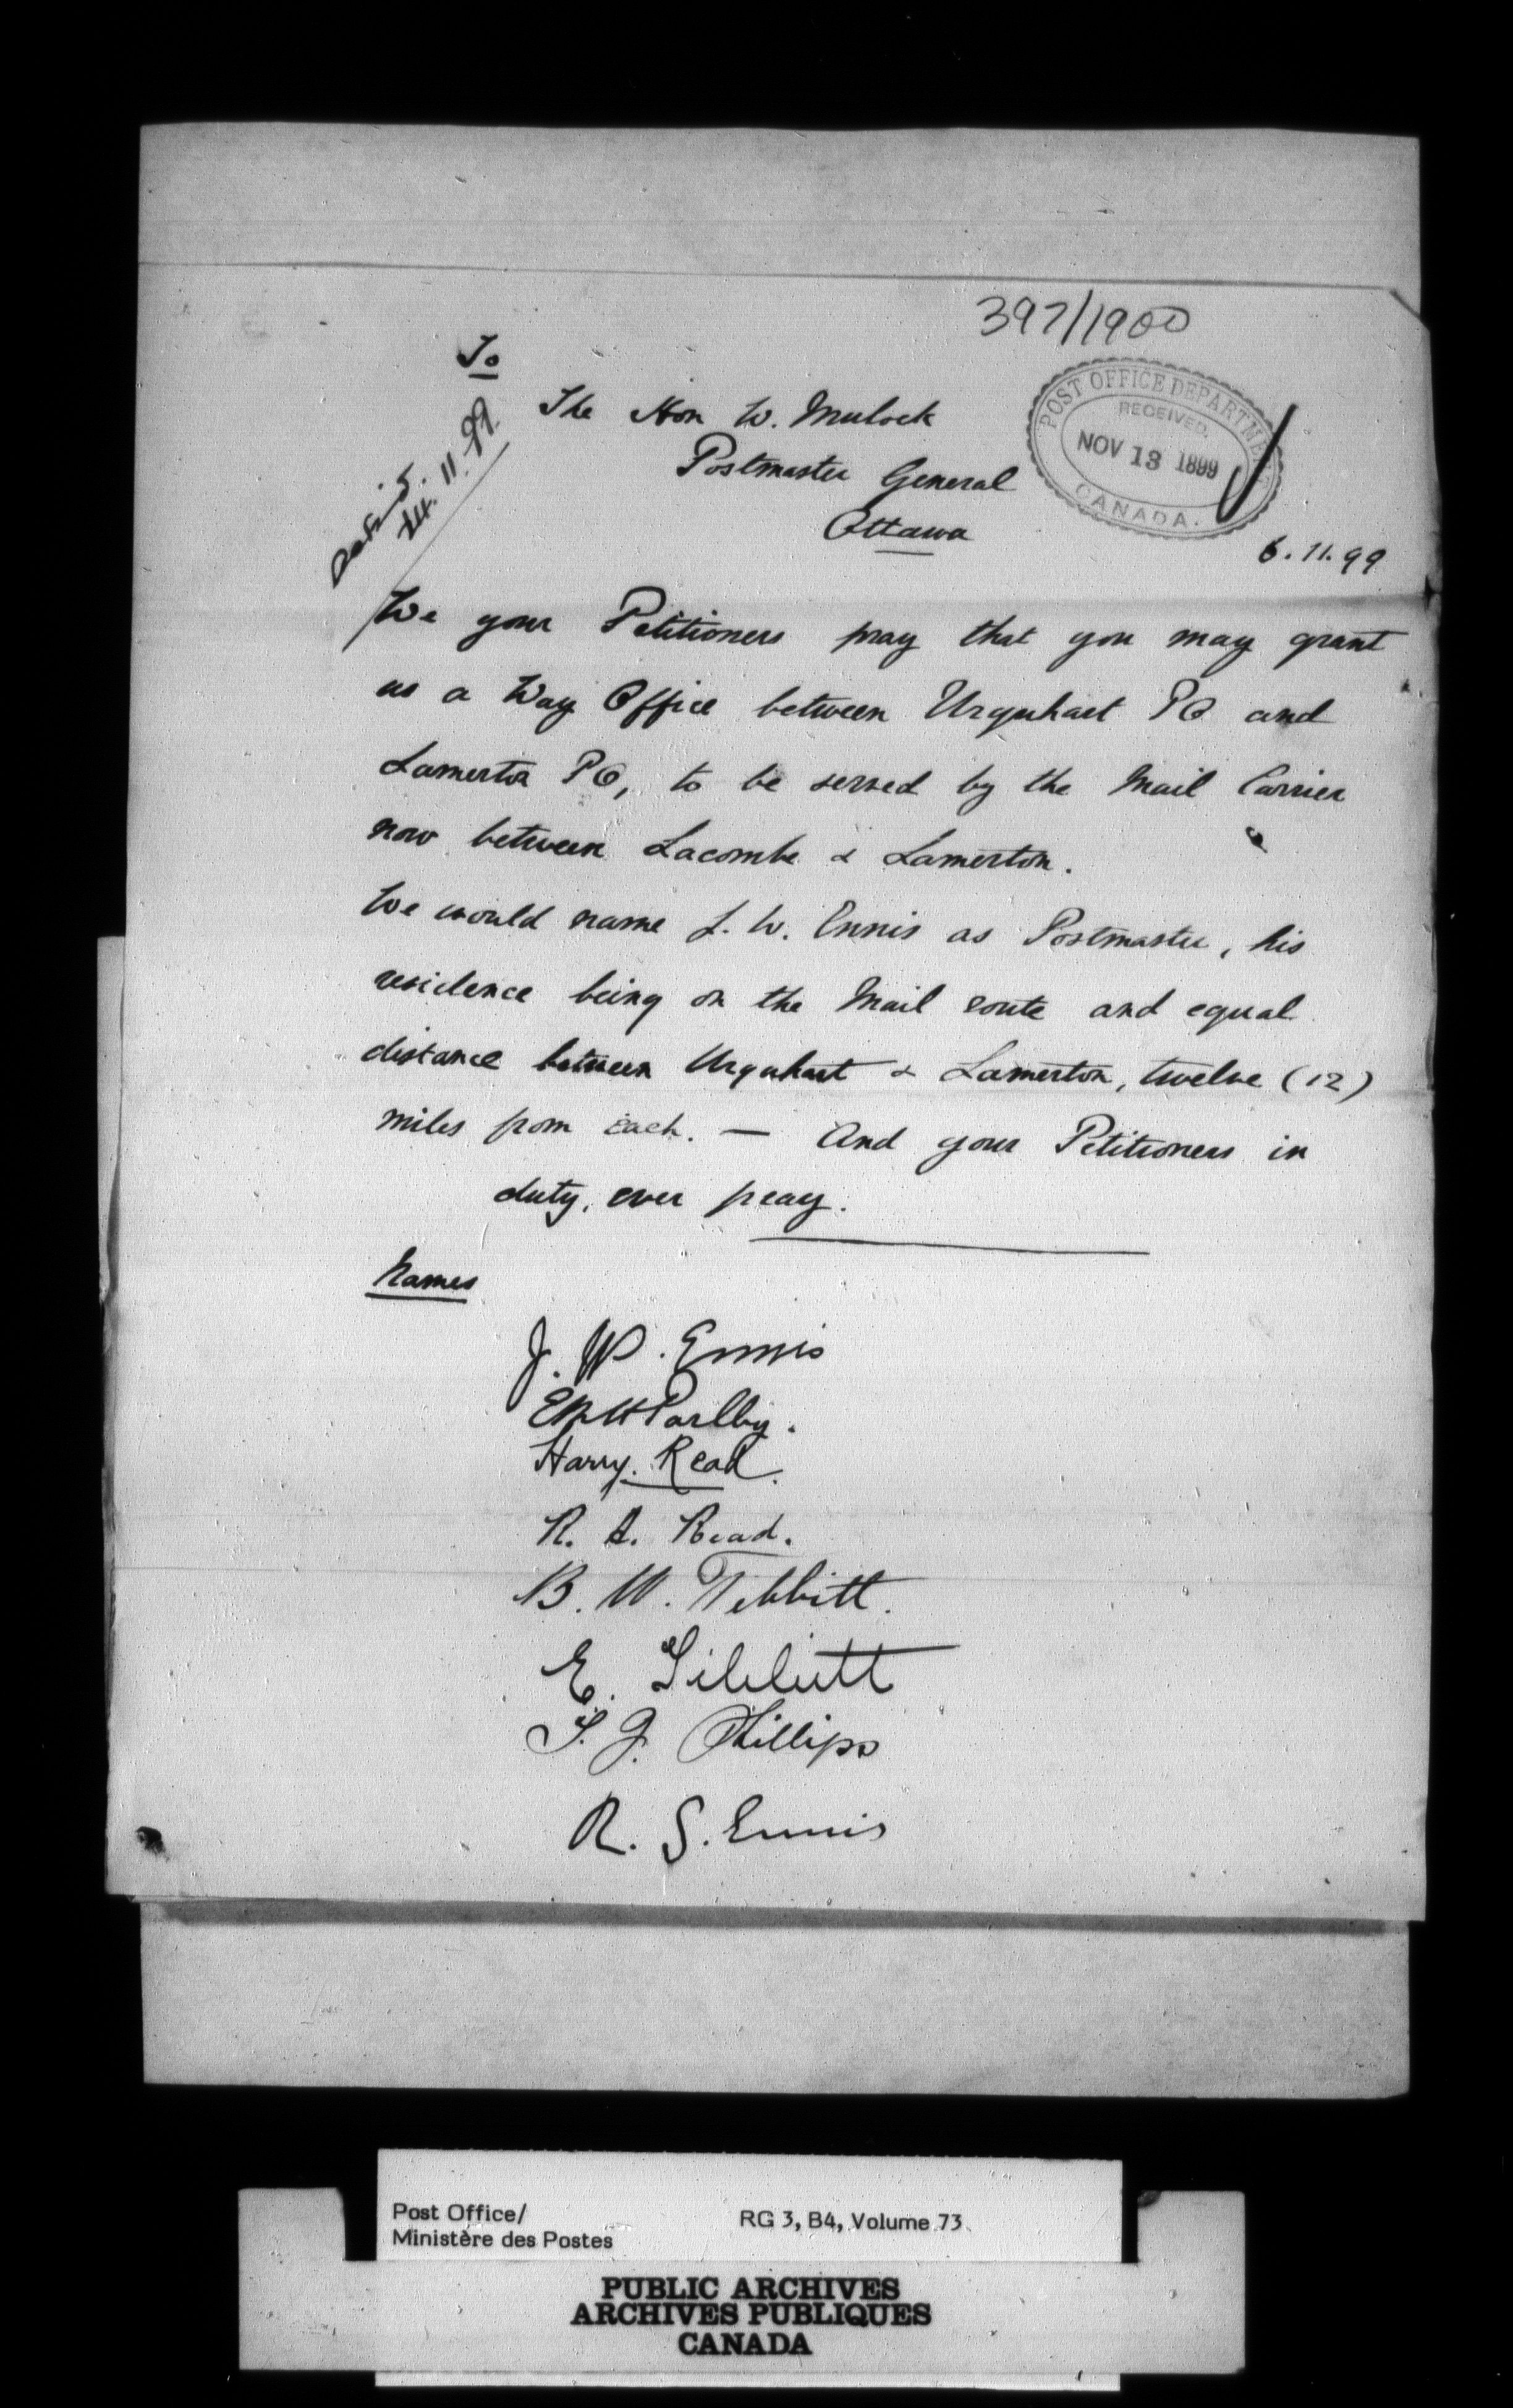 397/1900
To
The Hon W. Mulock
Postmaster General
Ottawa
POST OFFICE DEPARTMENT
RECEIVED.
NOV 13 1899
CANADA.
6.11.99
5.11.99.
We your Petitioners pray that you may grant
us a Way Office between Urquhart PO and
Lamerton PO, to be served by the Mail Carrier
now between Lacombe & Lamerton.
We would name J. W. Ennis as Postmaster, his
residence being on the Mail route and equal
distance between Urquhart & Lamerton, twelve (12)
miles from each. — And your Petitioners in
duty, ever pray.
Names
J. W. Ennis
Parlby.
Harry. Read.
R. A. Read.
B. W. Tebbitt.
E. Tibbitt
J. Phillips
R. S. Ennis
Post Office/
Ministère des Postes
RG 3, B4, Volume 73
PUBLIC ARCHIVES
ARCHIVES PUBLIQUES
CANADA